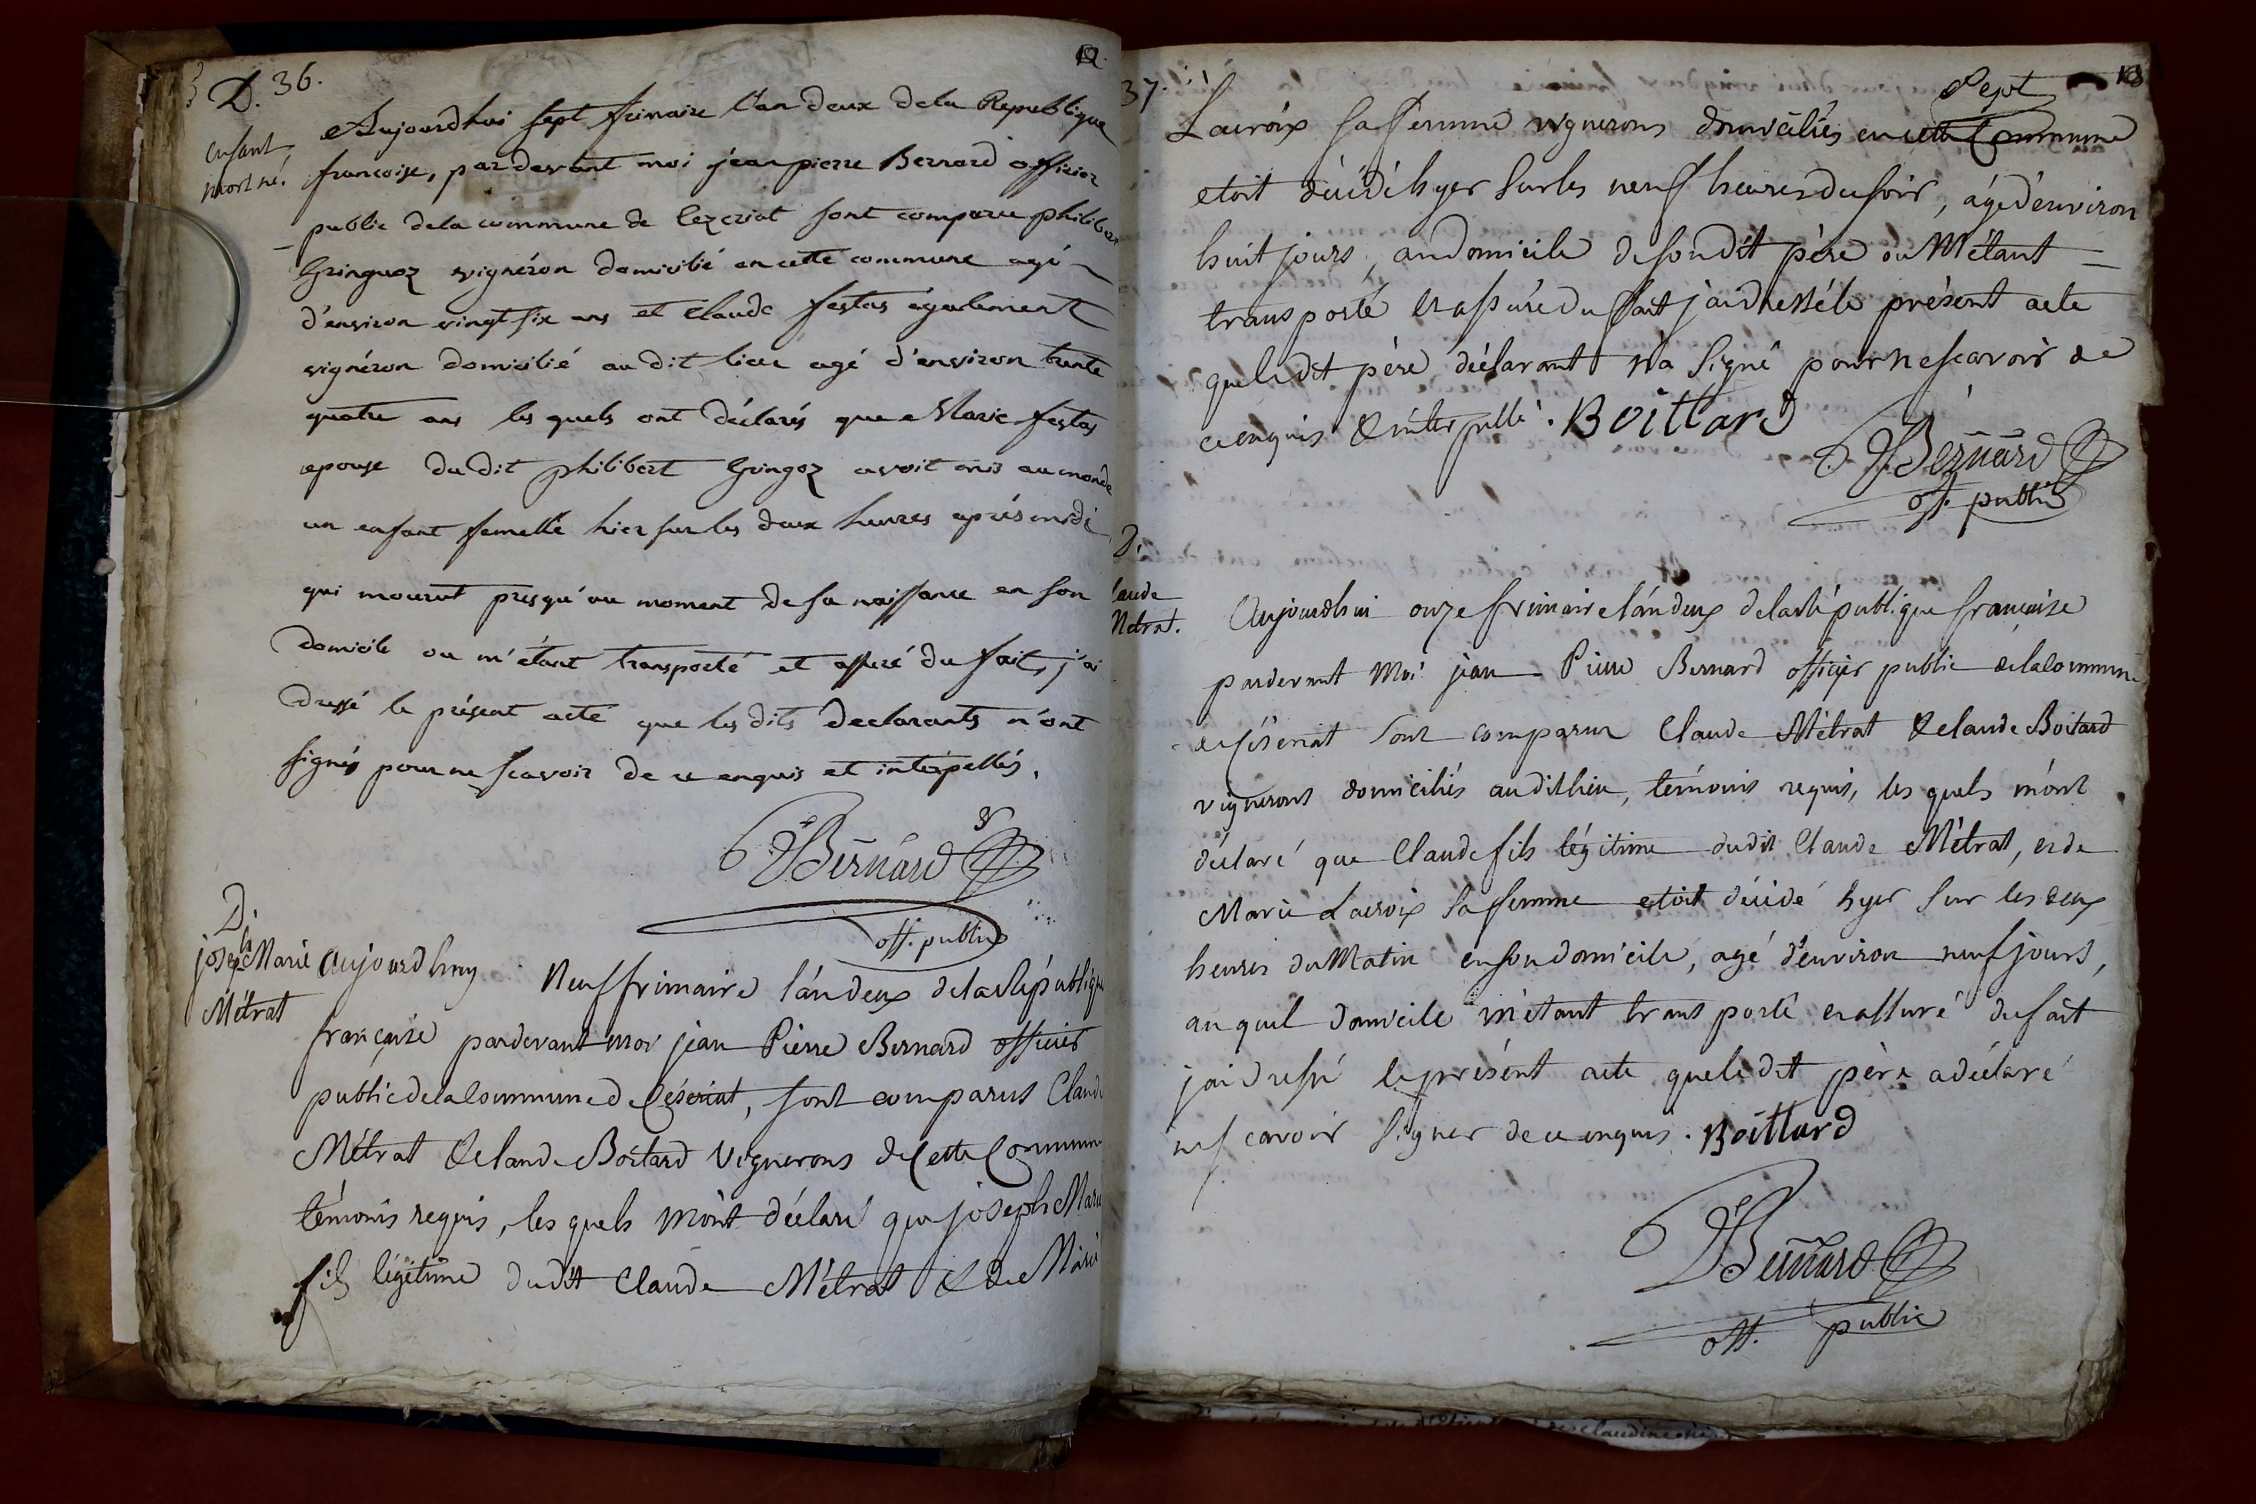 D. 36.
enfant
mort né.
Aujourdhui sept frimaire l'an deux dela Republique
francoise, pardevant moi jean pierre Bernard officier
public dela commune de Cezeriat sont comparu philibert
Gringoz vignéron domicilié en cette commune agé
d'environ vingt six ans et Claude festas également
vignéron domicilié au dit lieu agé d'environ trente
quatre ans les quels ont déclarés que Marie festas
epouse du dit philibert Gringoz avoit mis au monde
un enfant femelle hier sur les deux heures après midi
qui mourut presqu'au moment de sa naissance en son
domicile ou m'étant transporté et assuré du fait, j'ai
dressé le présent acte que les dits declarants n'ont
signés pour ne scavoir de ce enquis et interpellés.
Bernard
off. public
D.
joseph Marie
Métrat
aujourdhuy Neuf frimaire l'an deux dela République
française pardevant moi jean Pierre Bernard officier
public dela Commune de Céseriat, sont comparus Claude
Métrat & claude Boitard vignerons de Cette Commune
témoins requis, les quels m'ont déclaré que joseph Marie
fils légitime dudit Claude Métrat & de Marie
37.
Sept
Lacroix sa femme vignerons domiciliés en cette Commune
etoit décédé hyer sur les neuf heures du soir, âgé d'environ
huit jours, au domicile de son dit père ou M'étant
transporté et assuré du fait j'ai dressé le présent acte
que le dit père déclarant n'a signé pour ne scavoir de
ce enquis & interpellé. Boittard
Bernard
off. public
D.
laude
Metrat.
Aujourdhui onze frimaire l'an deux dela République française
pardevant Moi jean Pierre Bernard officier public de la Commune
de Céseriat sont comparus Claude Métrat & claude Boitard
vignerons domiciliés au dit lieu, témoins requis, les quels m'ont
déclaré que Claude fils légitime dudit Claude Métrat, et de
Marie Lacroix sa femme etoit décédé hyer sur les deux
heures du Matin en son domicile, agé d'environ neuf jours,
au quel domicile m'étant transporté et assuré du fait
j'ai dressé le présent acte que le dit père a déclaré
ne scavoir signer de ce enquis. Boittard
Bernard
off. public